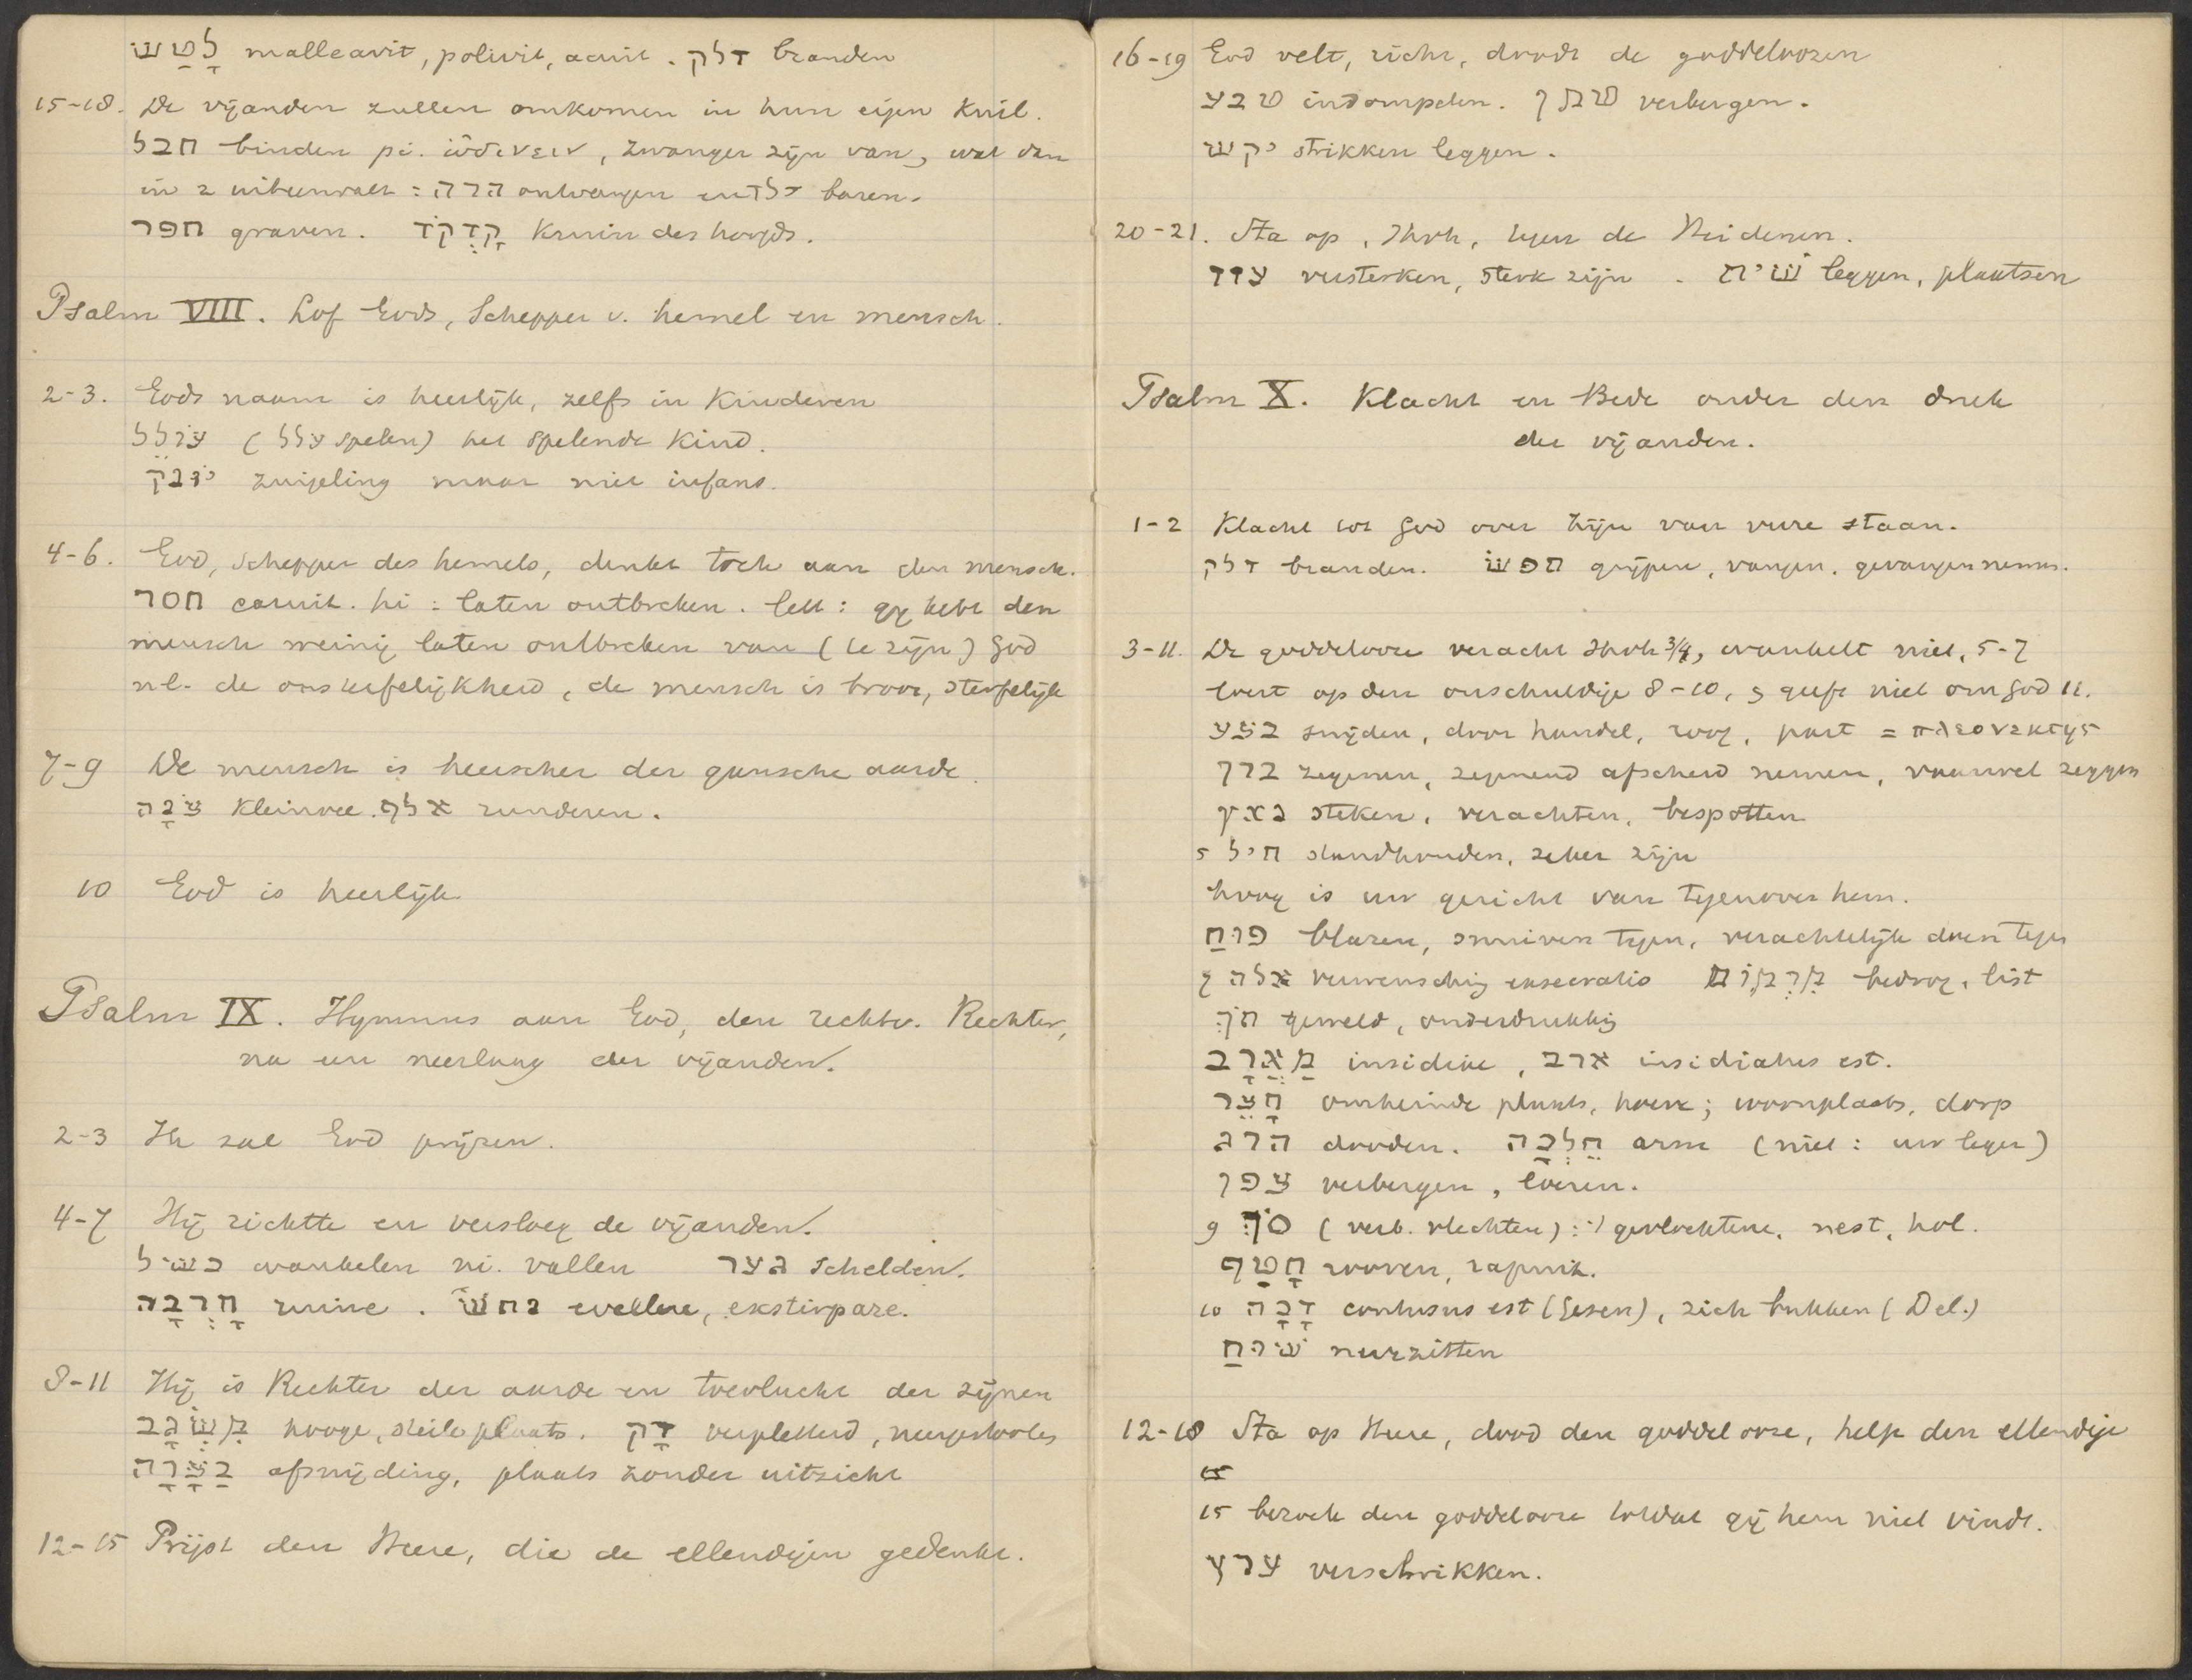 לָטַשׁ malleavit, polivit, acuit. דלק branden
15-18. De vijanden zullen omkomen in hun eigen kuil.
חבל binden pi. ὠδινειν, zwanger zijn van, wat dan
in 2 uiteenvalt: הרה ontvangen en ילד baren.
חפר graven. קָדְקֹד kruin des hoofds.
Psalm VIII. Lof Gods, Schepper v. hemel en mensch.
2-3. Gods naam is heerlijk, zelfs in kinderen
עוֹלֵל (עלל spelen) het spelende kind.
יוֹנֵק zuigeling maar niet infans.
4-6. God, Schepper des hemels, denkt toch aan den mensch.
חסר caruit. hi: laten ontbreken. lett: gij hebt den
mensch weinig laten ontbreken van (te zijn) God
nl. de onsterfelijkheid, de mensch is broos, sterfelijk
7-9 De mensch is heerscher der gansche aarde.
צֹנָה kleinvee. אלף runderen.
10 God is heerlijk
Psalm IX. Hymnus aan God, den rechtv. Rechter,
na een neerlaag der vijanden.
2-3 Ik zal God prijzen.
4-7 Hij richtte en versloeg de vijanden.
כשׁל wankelen ni. vallen גער schelden.
חָרְבָה ruine. נתשׁ evellere, exstirpare.
8-11 Hij is Rechter der aarde en toevlucht der zijnen
מִשְׂגָּב hooge, steile plaats. דָּךְ verpletterd, neergestooten
בַּצָּרָה afsnijding, plaats zonder uitzicht
12-15 Prijst den Heere, die de ellendigen gedenkt.
16-19 God velt, richt, doodt de goddeloozen
טבע indompelen. טמן verbergen.
יקשׁ strikken leggen.
20-21. Sta op, Jhvh, tegen de Heidenen.
עזז versterken, sterk zijn. שׁית leggen, plaatsen
Psalm X. Klacht en Bede onder den druk
der vijanden.
1-2 Klacht tot God over Zijn van verre staan.
דלק branden. תפשׂ grijpen, vangen, gevangen nemen.
3-11. De goddelooze veracht Jhvh 3/4, wankelt niet, 5-7
loert op den onschuldige 8-10, geeft niet om God 11.
בצע snijden, door handel, roof, part = πλεονεκτης
ברך zegenen, zegenend afscheid nemen, vaarwel zeggen
נאץ steken, verachten, bespotten
5 חיל standhouden, zeker zijn
hoog is uw gericht van tegenover hem.
פוּחַ blazen, snuiven tegen, verachtelijk doen tegen
7 אלה verwensching exsecratio מִרְמוֹת bedrog, list
תֹּךְ geweld, onderdrukking
מַאֲרָב insidiae, ארב insidiatus est.
חָצֵר omheinde plaats, hoeve; woonplaats, dorp
הרג dooden. חֵלְכָה arm (niet: uw leger)
צפן verbergen, loeren.
9 סֹךְ (verb. vlechten): 't gevlochtene, nest, hol.
חָטַף rooven, rapuit.
10 דָּכָה contusus est (Gesen), zich bukken (Del.)
שׁוּחַ neerzitten
12-18 Sta op Heere, dood den goddelooze, help den ellendige
15
15 bezoek den goddelooze totdat gij hem niet vindt.
ערץ verschrikken.